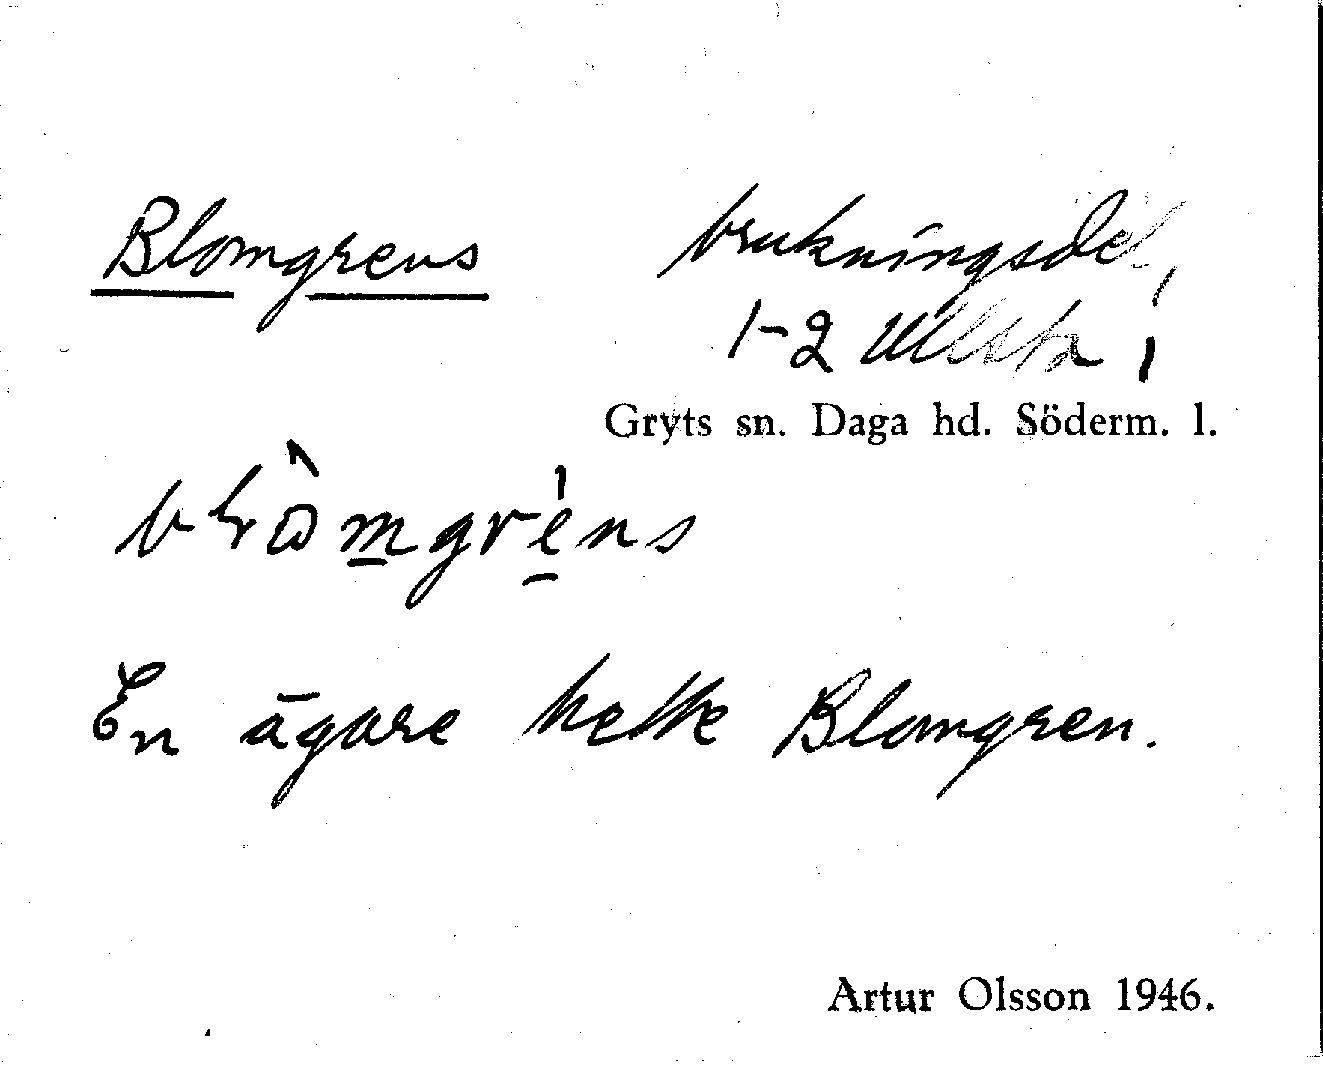 Blomgrens brukningsdel,
1-2 Ullsta,
Gryts sn. Daga hd. Söderm. l.
En ägare hette Blomgren.
Artur Olsson 1946.